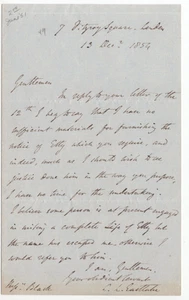 7 Fitzroy Square, London
13 Decr. 1854
Gentlemen
In reply to your letter of the
12th I beg to say that I have no
sufficient materials for furnishing the
notice of Etty which you require, and
indeed, such as I should wish to see
justice done him in the way you propose, I
have no time for the undertaking.
I believe some person is at present engaged
in writing a complete Life of Etty but
the name has escaped me, otherwise I
would refer you to him.
I am, Gentlemen,
Your obedient servant
C. L. Eastlake
Messrs. Black